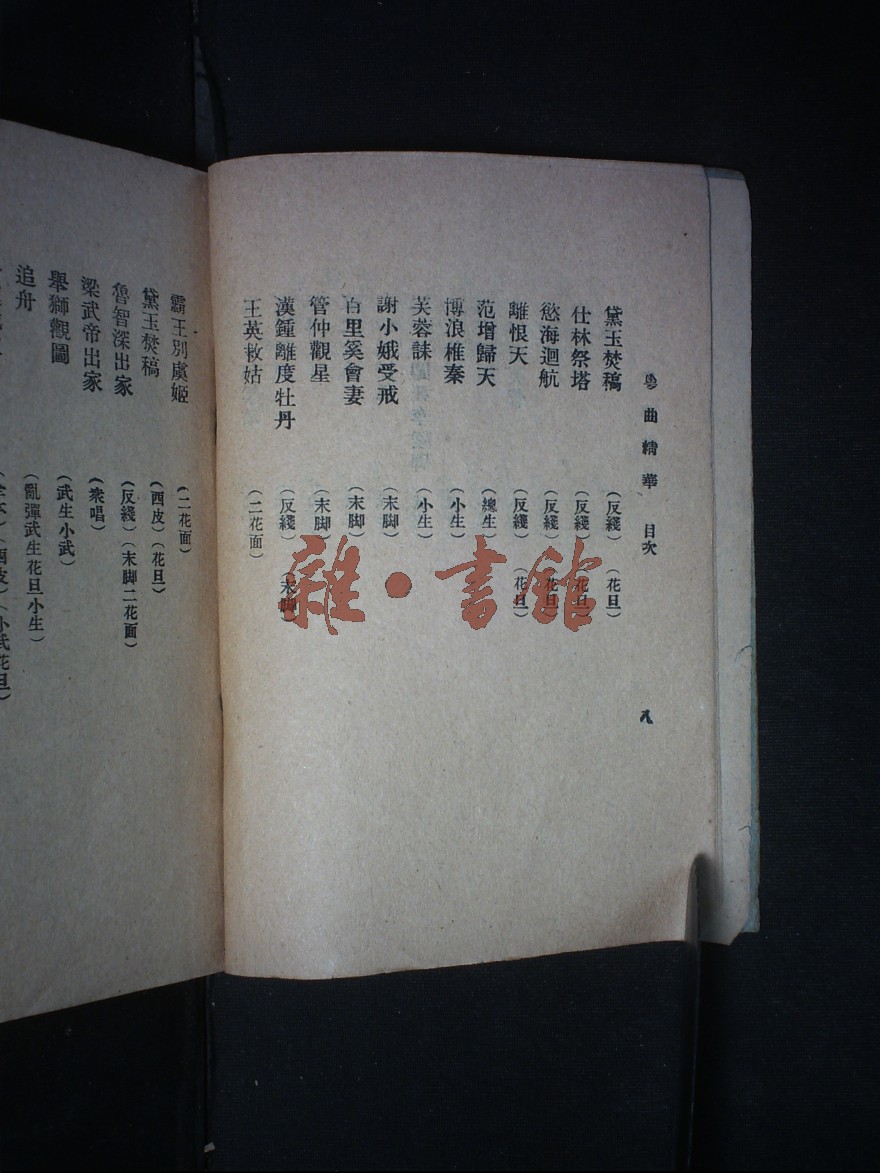 粵曲精華 目次 八
黛玉焚稿 (反綫) (花旦)
仕林祭塔 (反綫) (花旦)
慾海迴航 (反綫) (花旦)
離恨天 (反綫) (花旦)
范增歸天 (總生)
博浪椎秦 (小生)
芙蓉誄 (小生)
謝小娥受戒 (末脚)
百里奚會妻 (末脚)
管仲觀星 (末脚)
漢鍾離度牡丹 (反綫) (末脚)
王英救姑 (二花面)
霸王別虞姬 (二花面)
黛玉焚稿 (西皮) (花旦)
魯智深出家 (反綫) (末脚二花面)
梁武帝出家 (衆唱)
舉獅觀圖 (武生小武)
追舟 (亂彈武生花旦小生)
(西皮) (小武花旦)
雜·書館